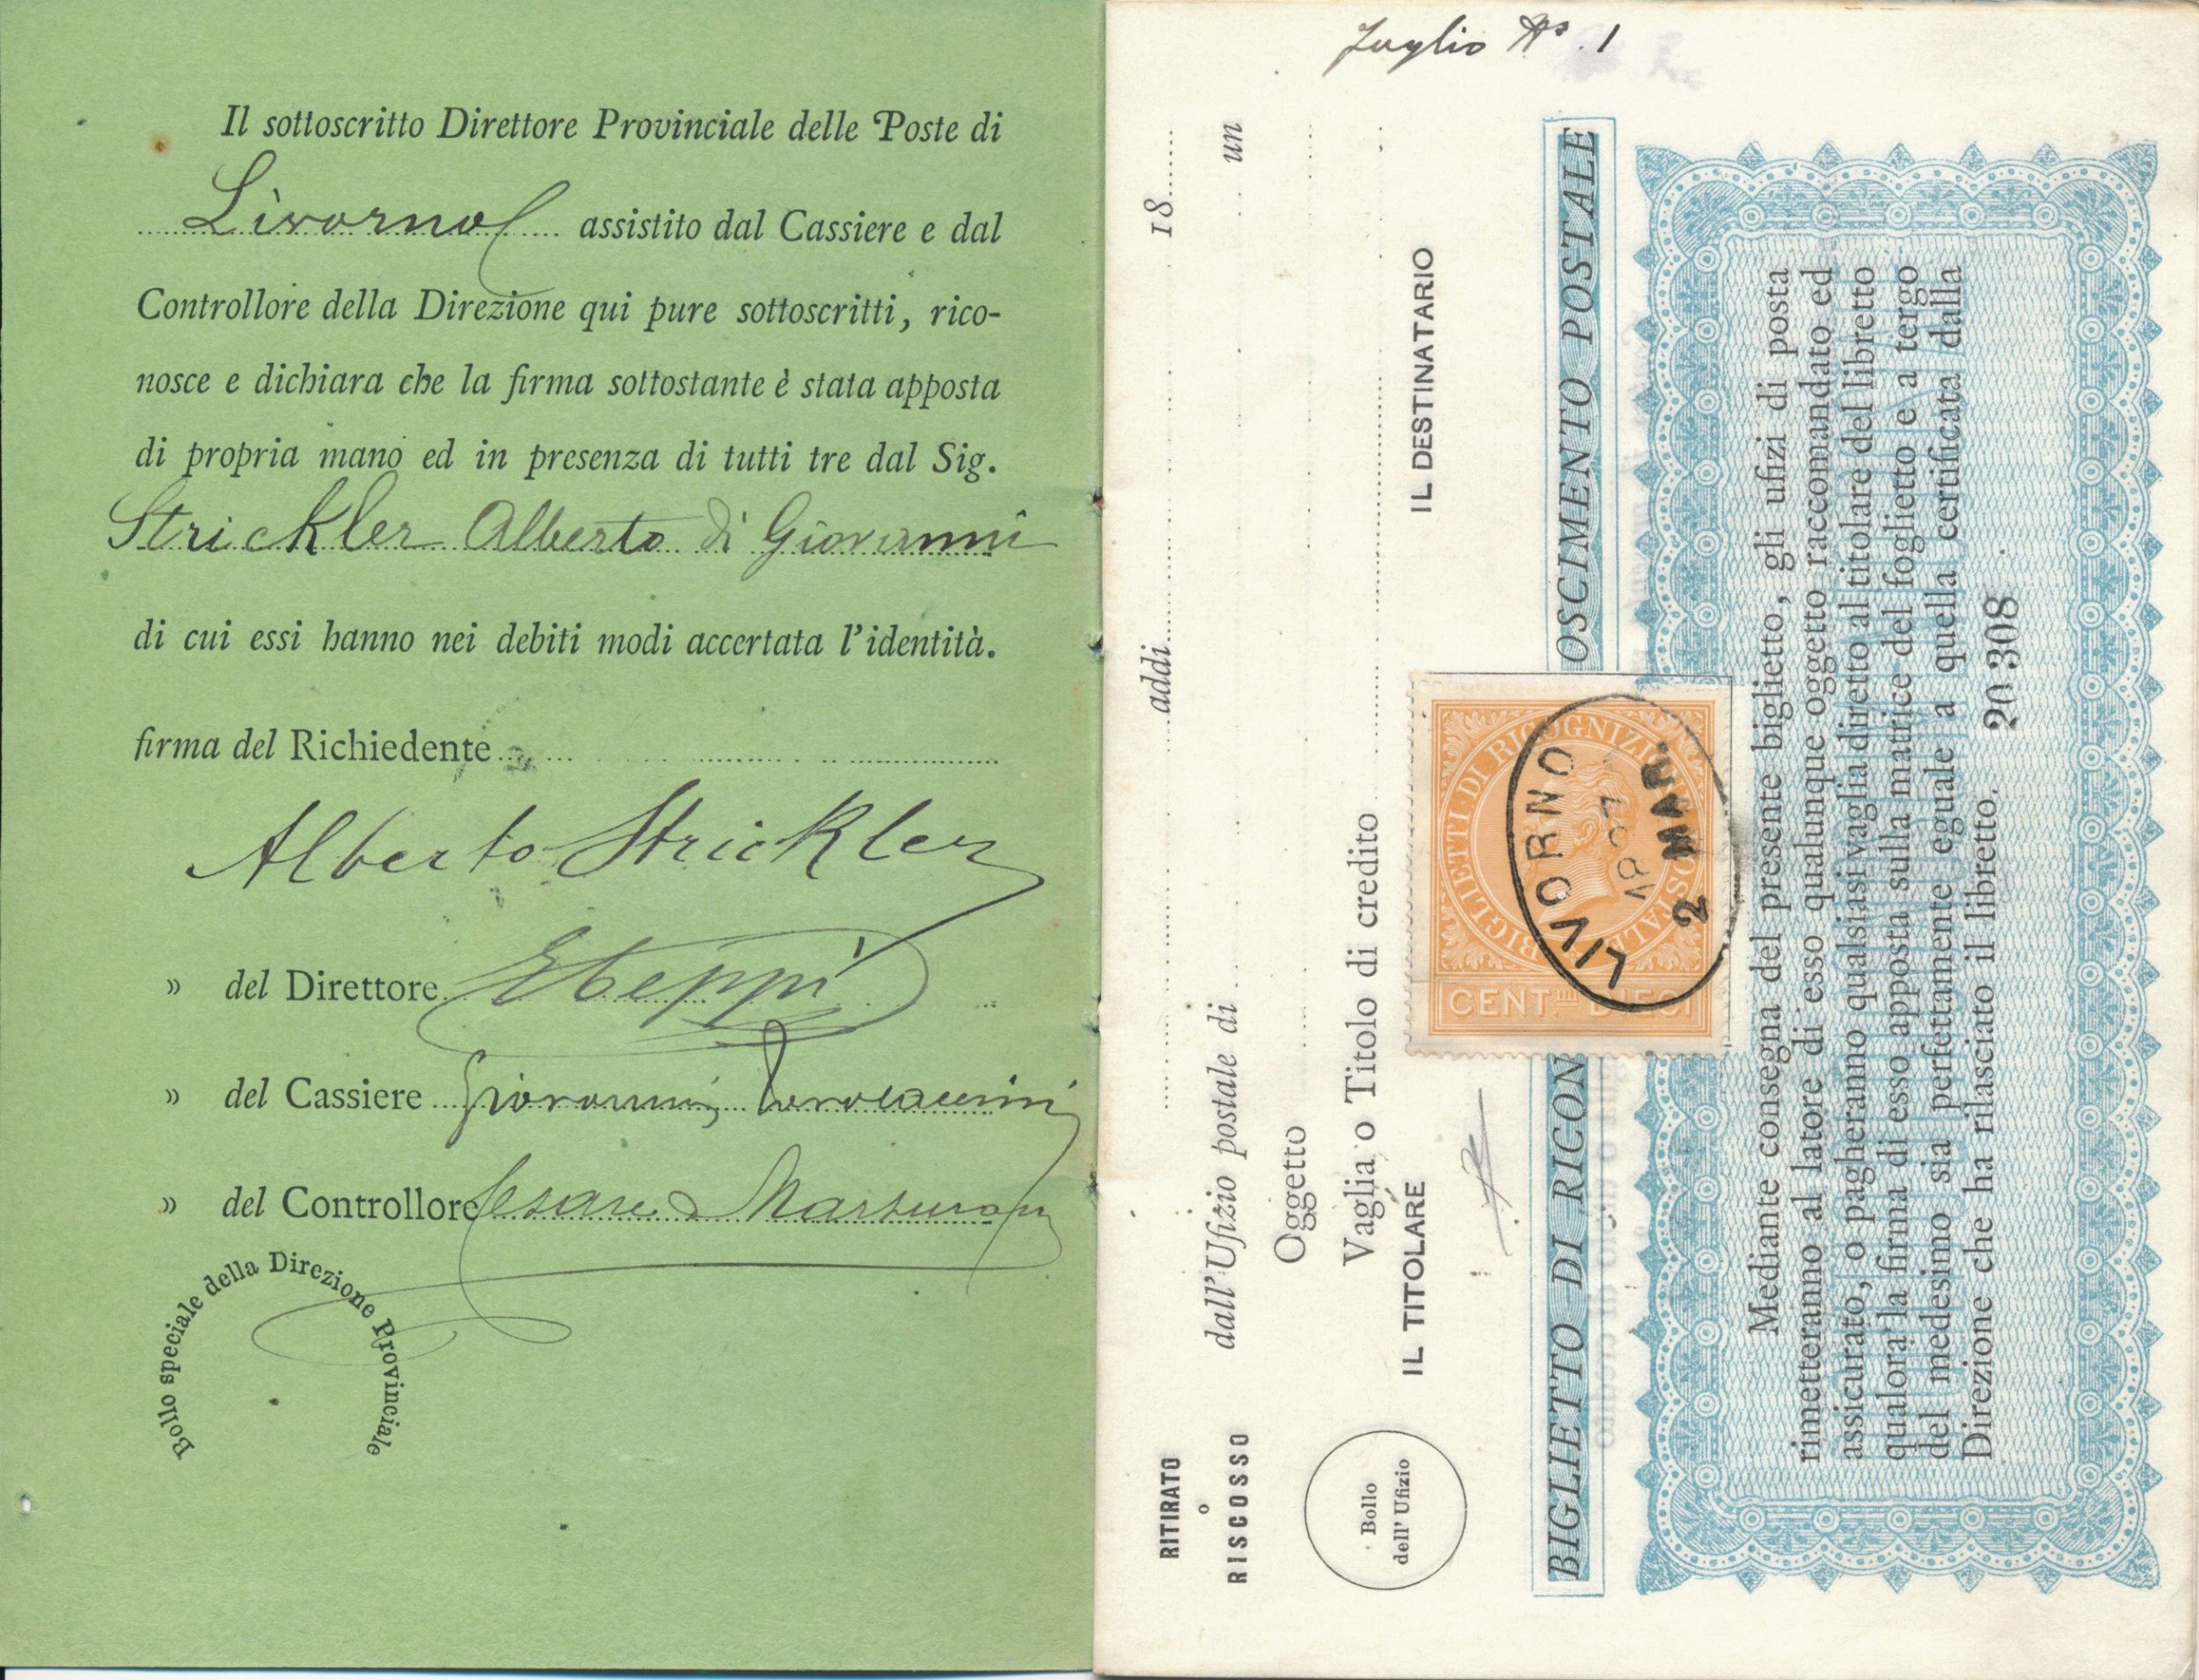 Il sottoscritto Direttore Provinciale delle Poste di
Livorno assistito dal Cassiere e dal
Controllore della Direzione qui pure sottoscritti, rico-
nosce e dichiara che la firma sottostante è stata apposta
di propria mano ed in presenza di tutti tre dal Sig.
Strickler Alberto di Giovanni
di cui essi hanno nei debiti modi accertata l'identità.
firma del Richiedente
Alberto Strickler
» del Direttore
» del Cassiere Giovanni
» del Controllore Cesare
Bollo speciale della Direzione Provinciale
1
RITIRATO
o
RISCOSSO
addì 18
dall'Ufizio postale di un
Oggetto
Vaglia o Titolo di credito
IL TITOLARE IL DESTINATARIO
Bollo
dell'Ufizio
BIGLIETTO DI RICON OSCIMENTO POSTALE
BIGLIETTI DI RICOGNIZIONE POSTALE
CENT.MI DIECI
LIVORNO
2 MAR.
Mediante consegna del presente biglietto, gli ufizi di posta
rimetteranno al latore di esso qualunque oggetto raccomandato ed
assicurato, o pagheranno qualsiasi vaglia diretto al titolare del libretto
qualora la firma di esso apposta sulla matrice del foglietto e a tergo
del medesimo sia perfettamente eguale a quella certificata dalla
Direzione che ha rilasciato il libretto. 20 308